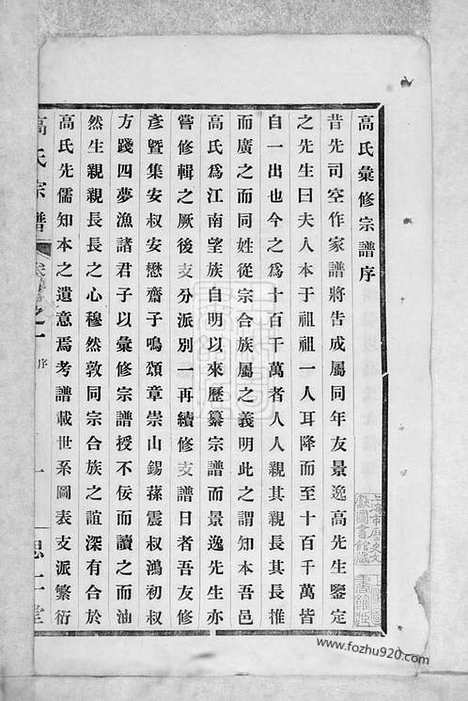 高氏彙修宗譜序
昔先司空作家譜將告成屬同年友景逸高先生鑒定
之先生曰夫人本于祖祖一人耳降而至十百千萬皆
自一出也今之爲十百千萬者人人親其親長其長推
而廣之而同姓從宗合族屬之義明此之謂知本吾邑
高氏爲江南望族自明以來歷纂宗譜而景逸先生亦
嘗修輯之厥後支分派別一再續修支譜日者吾友修
彥暨集安叔安懋齋子鳴頌章崇山錫蓀震叔鴻初叔
方踐四夢漁諸君子以彙修宗譜授不佞而讀之而油
然生親親長長之心穆然敦同宗合族之誼深有合於
高氏先儒知本之遺意焉考譜載世系圖表支派繁衍
高氏宗譜
序
一
www.fozhu920.com